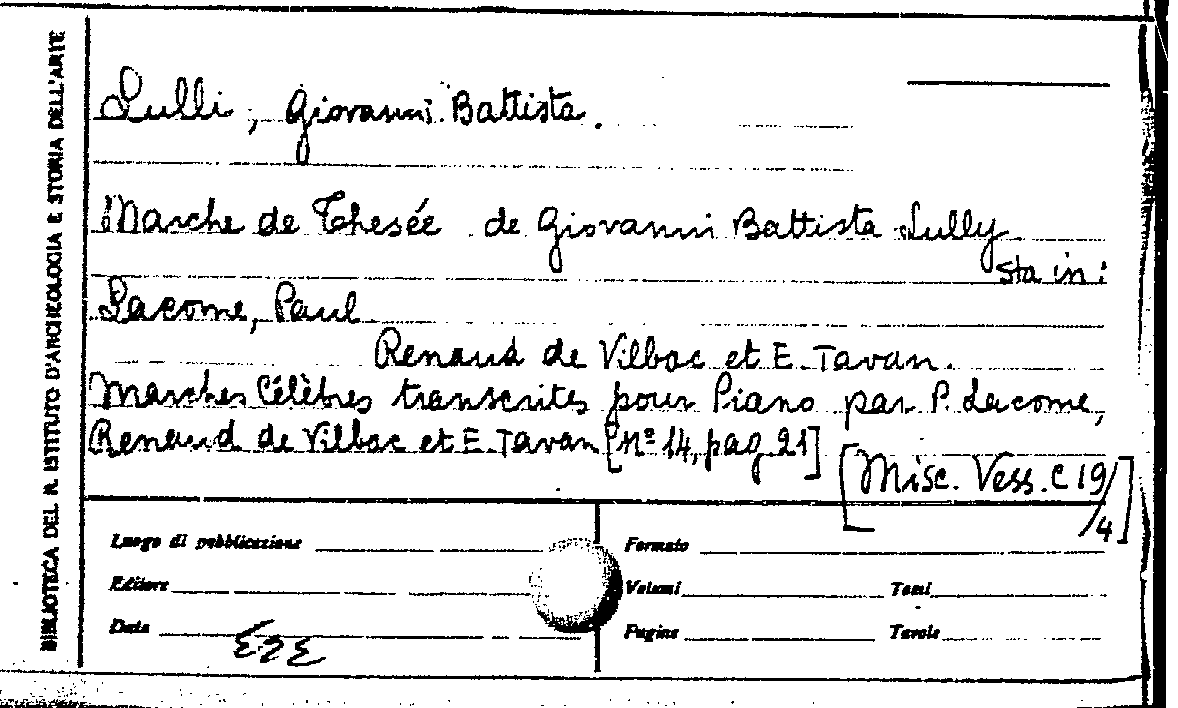 BIBLIOTECA DEL R. ISTITUTO D'ARCHEOLOGIA E STORIA DELL'ARTE
Lulli, Giovanni Battista.
Marche de Thesée de Giovanni Battista Lully
sta in:
Lacome, Paul
Renaud de Vilbac et E. Tavan.
Marches Célèbres transcrites pour Piano par P. Lacome,
Renaud de Vilbac et E. Tavan [Nº 14, pag. 21]
[Misc. Vess. C 19/4]
Luogo di pubblicazione
Formato
Editore
Volumi
Tomi
Data
Pagine
Tavole